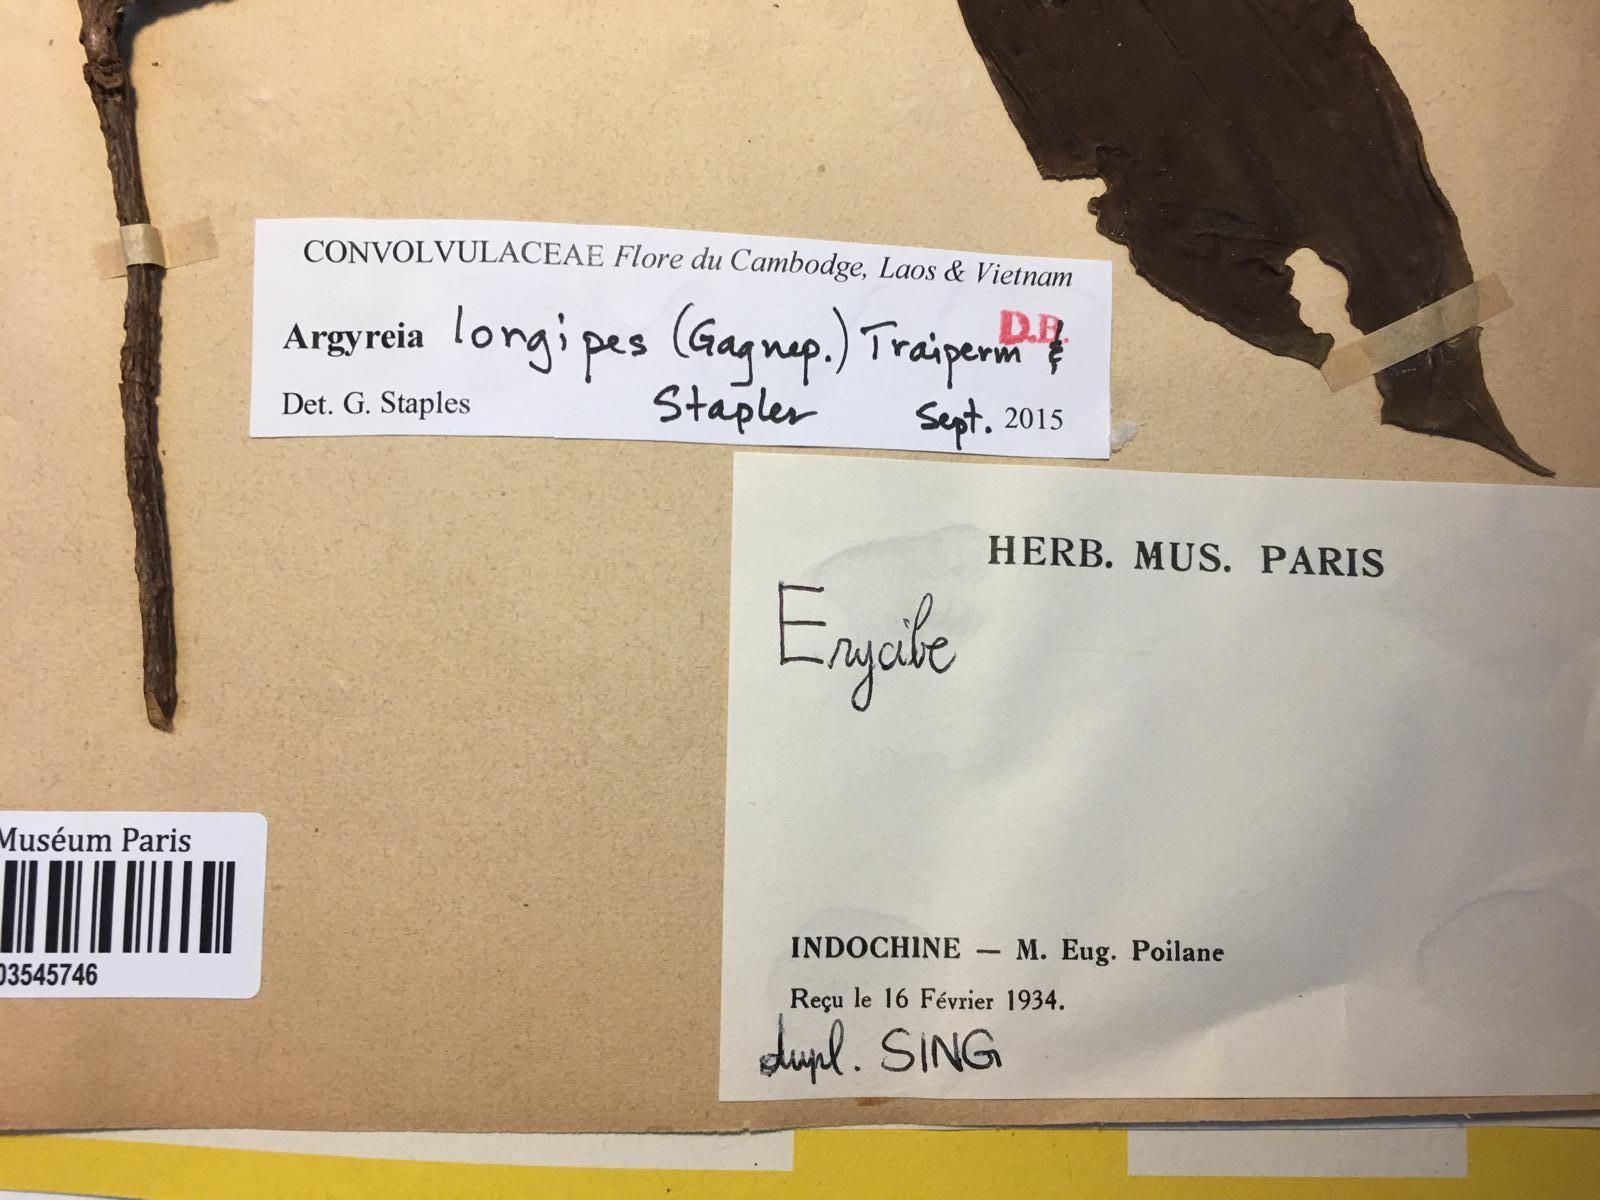 CONVOLVULACEAE Flore du Cambodge, Laos & Vietnam
Argyreia longipes (Gagnep.) Traiperm &
D.B.
Staples
Det. G. Staples Sept. 2015
HERB. MUS. PARIS
Erycibe
INDOCHINE — M. Eug. Poilane
Reçu le 16 Février 1934.
dupl. SING
Muséum Paris
03545746